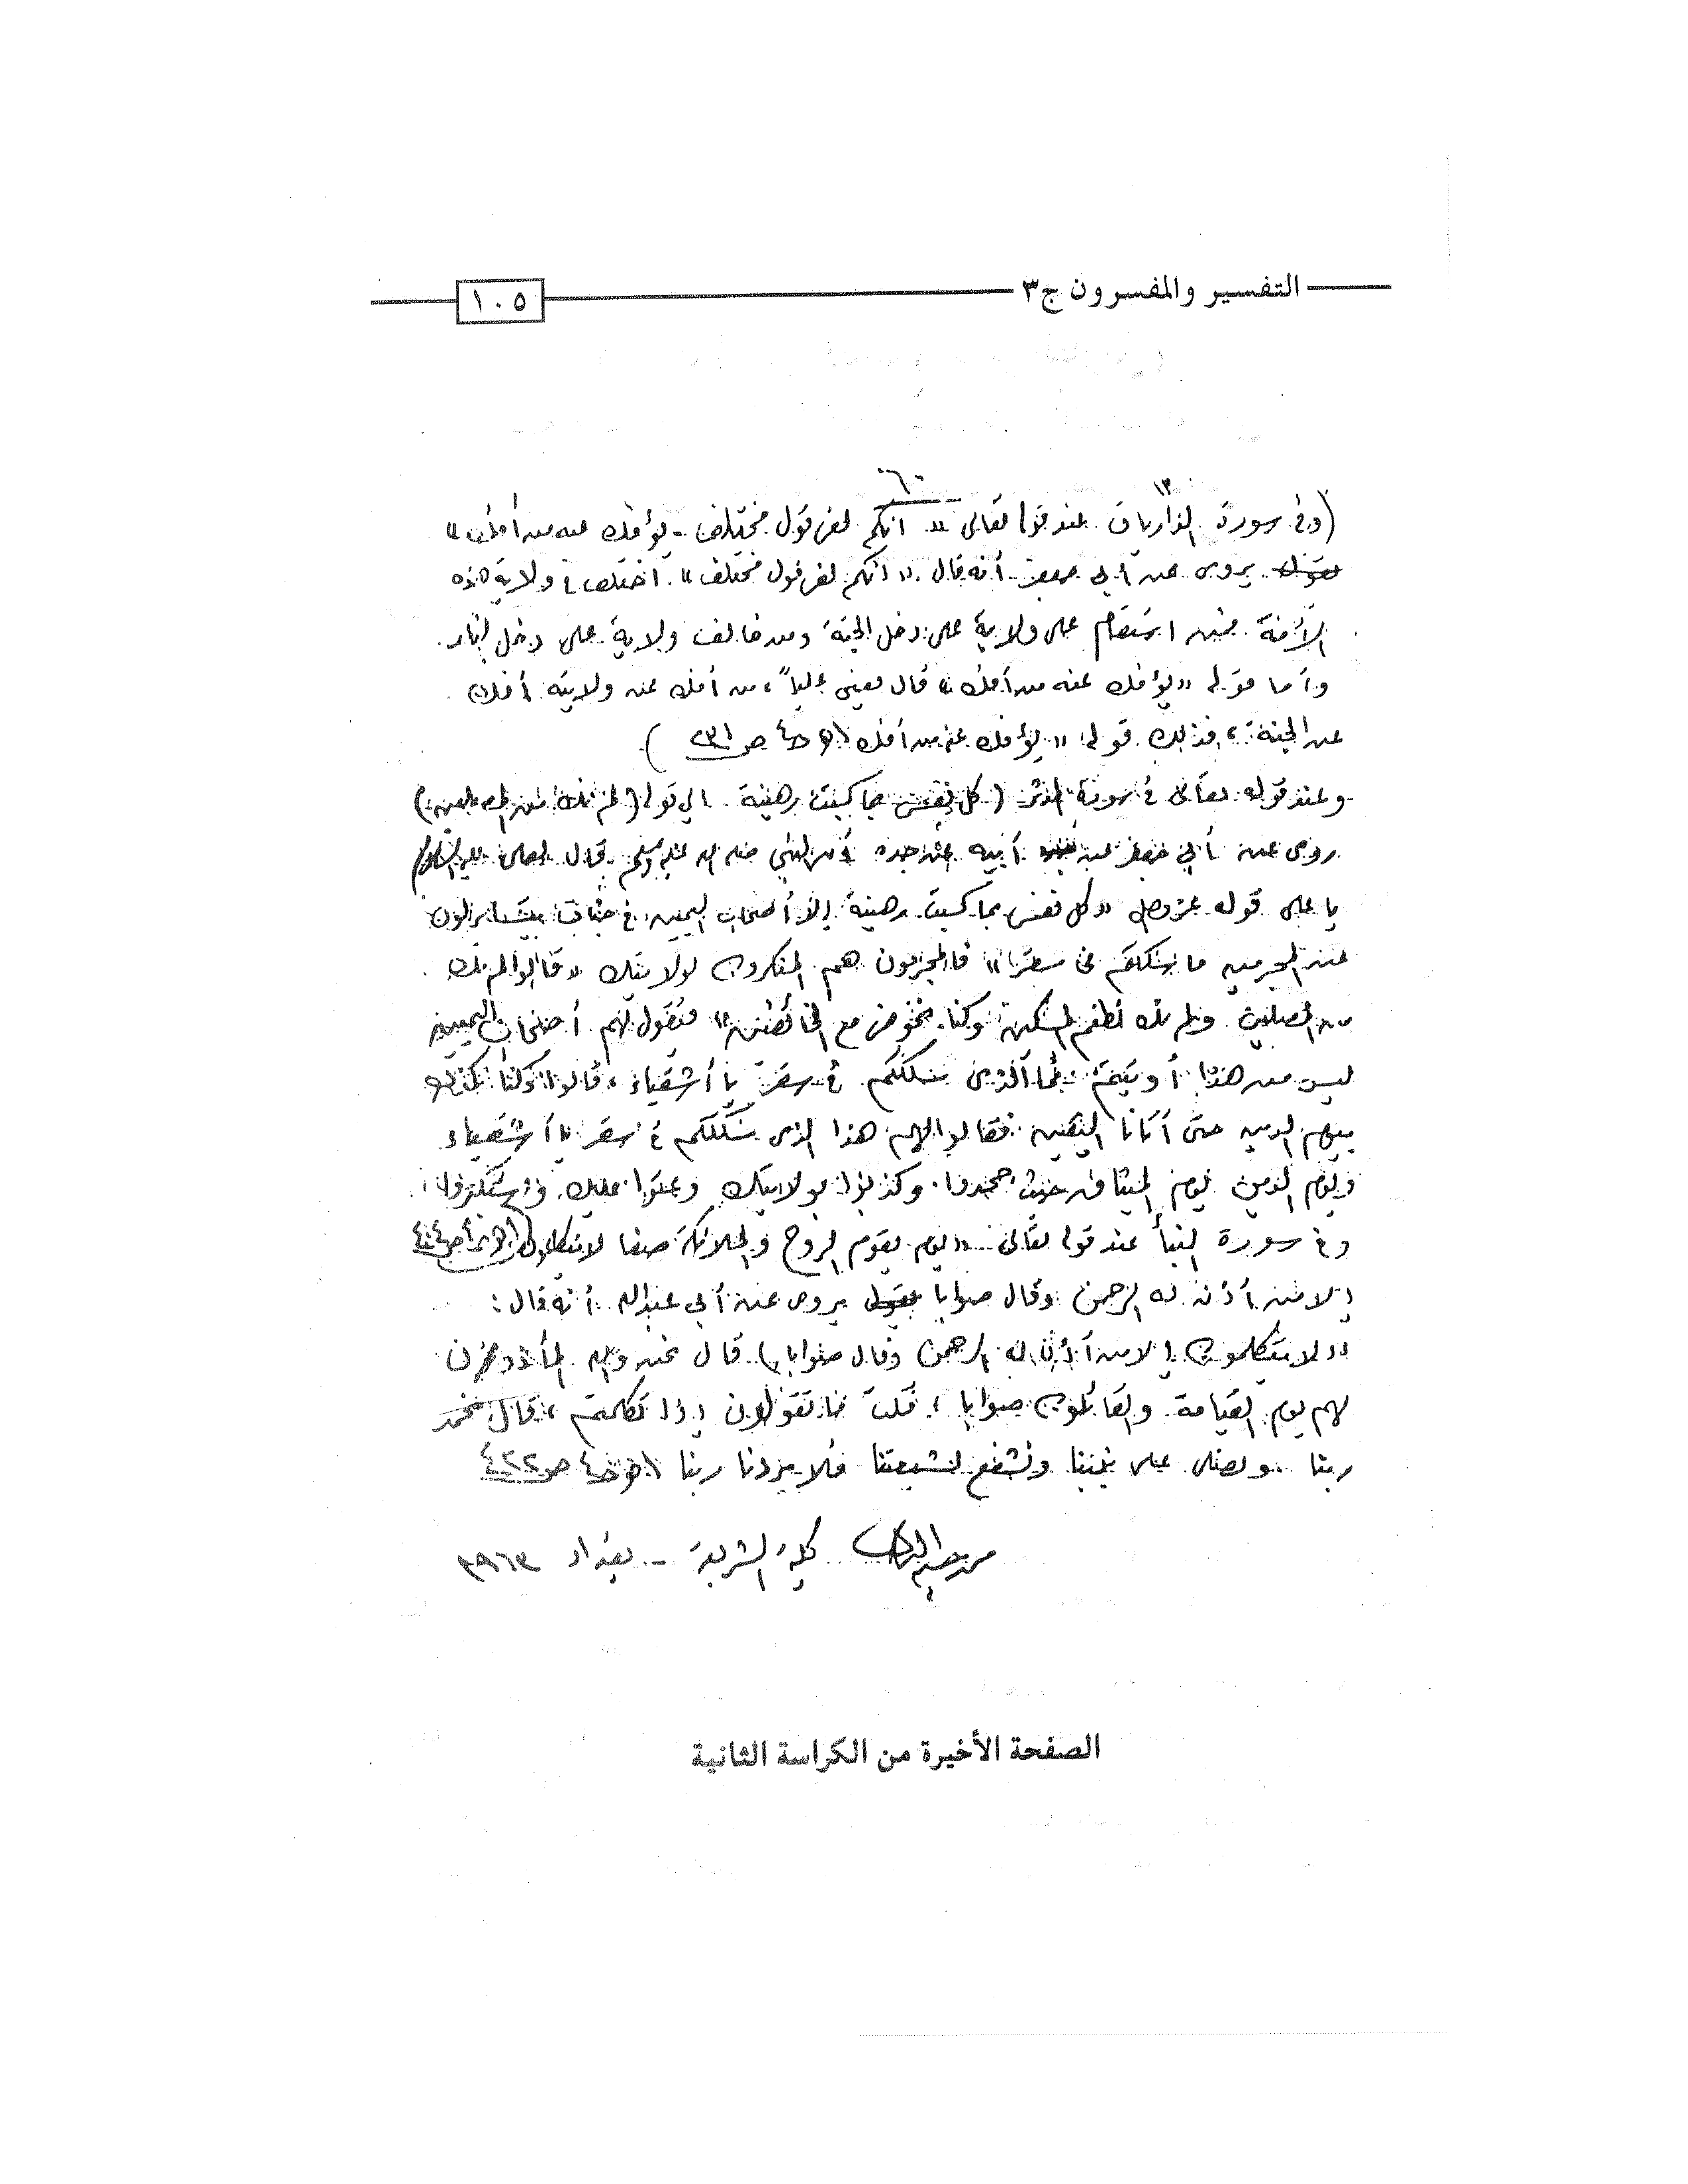 التفسير والمفسرون ج٣
١٠٥
٦٠
١٣
(وفى سورة الذاريات عند قوله تعالى « انكم لفى قول مختلف - يؤفك عنه من أفك »
يروى عن أبى جعفر أنه قال « انكم لفى قول مختلف » . اختلف فى ولاية هذه
الأمة فمن استقام على ولاية على دخل الجنة ومن خالف ولاية على دخل النار .
وأما قوله « يؤفك عنه من أفك » قال يعنى علياً ، من أفك عن ولايته أفك
عن الجنة ، فذلك قوله « يؤفك عنه من أفك ( ح٤ ص ٢٣١ ) .
وعند قوله تعالى فى سورة المدثر ( كل نفس بما كسبت رهينة الى قوله ( لم نك من المصلين )
روى عن أبى جعفر عن أبيه عن جده أن النبى صلى الله عليه وسلم قال لعلى عليه السلام
يا على قوله عز وجل « كل نفس بما كسبت رهينة إلا أصحاب اليمين فى جنات يتساءلون
عن المجرمين ما سلككم فى سقر » فالمجرمون هم المنكرون لولايتك « قالوا لم نك
من المصلين ولم نك نطعم المسكين وكنا نخوض مع الخائضين » فيقول لهم أصحاب اليمين
ليس من هذا أوتيتم فما الذى سلككم فى سقر يا أشقياء ، قالوا وكنا نكذب
بيوم الدين حتى أتانا اليقين فقالوا لهم هذا الذى سلككم فى سقر يا أشقياء
ويوم الدين يوم الميثاق حيث جحدوا وكذبوا بولايتك وعتوا عليك واستكبروا
وفى سورة النبأ عند قوله تعالى « يوم يقوم الروح والملائكة صفا لا يتكلمون
إلا من أذن له الرحمن وقال صوابا يروى عن أبى عبدالله أنه قال :
« لا يتكلمون إلا من أذن له الرحمن وقال صوابا ) قال نحن والله المأذون
لهم يوم القيامة والقائلون صوابا ، قلت ما تقولون إذا تكلمتم ، قال نحمد
ربنا ونصلى على نبينا ونشفع لشيعتنا فلا يردنا ربنا ( ح٤ ص ٤٢٢
كلية الشريعة - بغداد ١٩٦٣
الصفحة الأخيرة من الكراسة الثانية